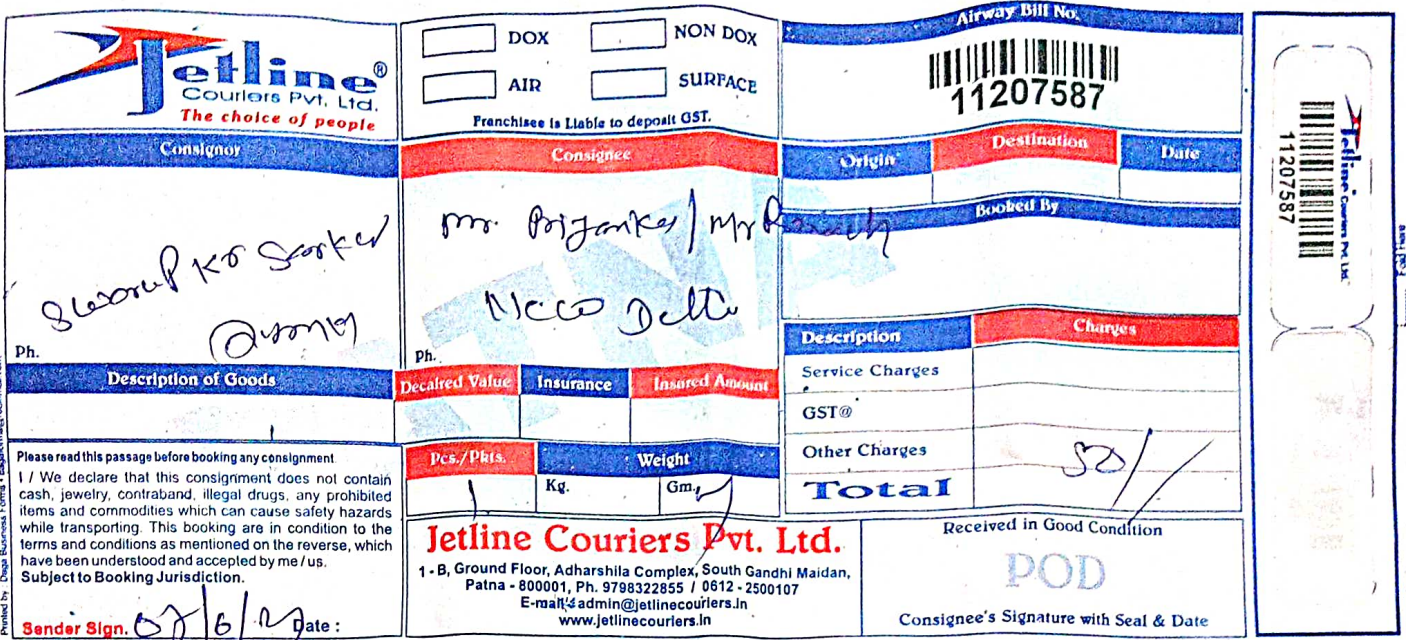 Jetline®
Couriers Pvt. Ltd.
The choice of people
DOX
NON DOX
AIR
SURFACE
Franchisee is Liable to deposit GST.
Airway Bill No.
11207587
Consignor
Ph.
Consignee
Mr.
New Delhi
Ph.
Origin
Destination
Date
Booked By
Description of Goods
Decalred Value
Insurance
Insured Amount
Description
Charges
Service Charges
GST@
Other Charges
50/
Total
Please read this passage before booking any consignment
I / We declare that this consignment does not contain
cash, jewelry, contraband, illegal drugs, any prohibited
items and commodities which can cause safety hazards
while transporting. This booking are in condition to the
terms and conditions as mentioned on the reverse, which
have been understood and accepted by me / us.
Subject to Booking Jurisdiction.
Sender Sign.
Date :
Pcs./Pkts.
1
Weight
Kg.
Gm.
Jetline Couriers Pvt. Ltd.
1 - B, Ground Floor, Adharshila Complex, South Gandhi Maidan,
Patna - 800001, Ph. 9798322855 / 0612 - 2500107
E-mail: admin@jetlinecouriers.in
www.jetlinecouriers.in
Received in Good Condition
POD
Consignee's Signature with Seal & Date
Jetline Couriers Pvt. Ltd.
11207587
Printed by : Daga Business Forms